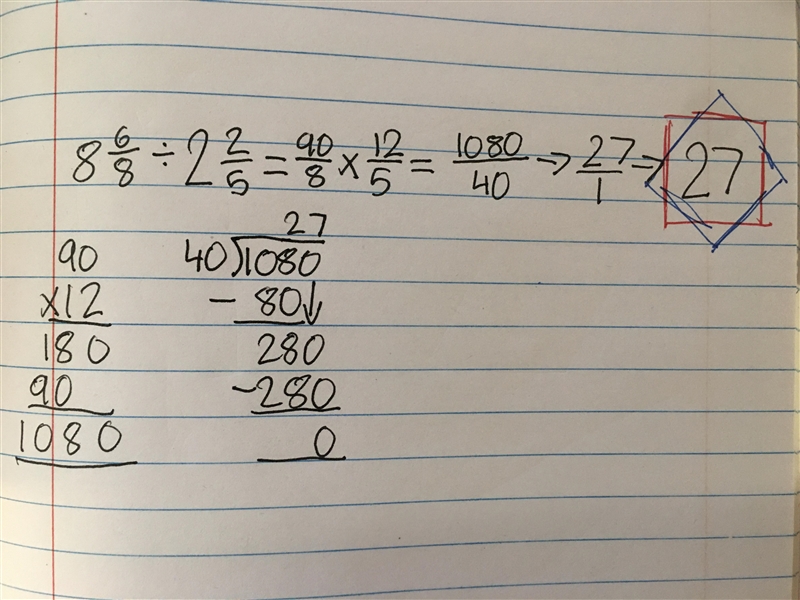 8 6/8 ÷ 2 2/5 = 90/8 × 12/5 = 1080/40 → 27/1 → 27
90
×12
180
90
1080
27
40)1080
- 80↓
280
-280
0